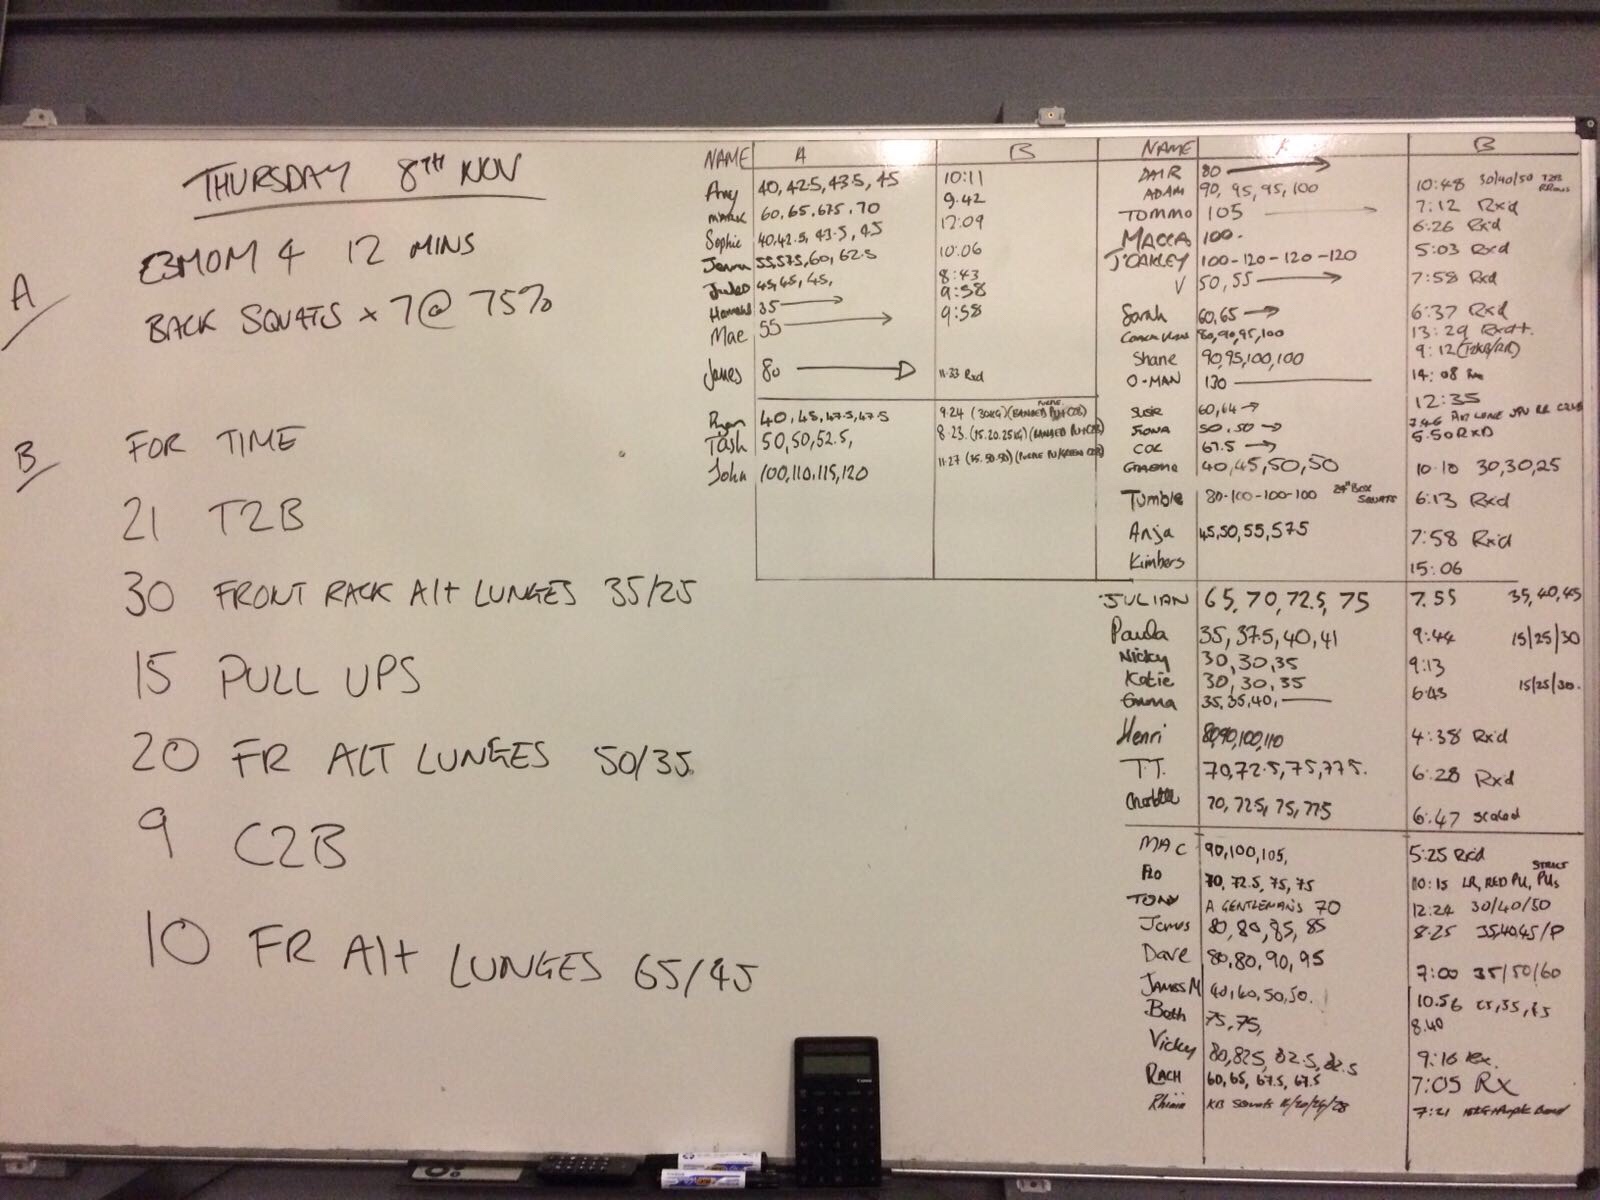 THURSDAY 8TH NOV
A
E3MOM 4 12 MINS
BACK SQUATS x 7 @ 75%
B
FOR TIME
21 T2B
30 FRONT RACK Alt LUNGES 35/25
15 PULL UPS
20 FR ALT LUNGES 50/35
9 C2B
10 FR Alt LUNGES 65/45
NAME A B
Amy 40, 42.5, 43.5, 45 10:11
60, 65, 67.5, 70 9:42
Sophie 40, 42.5, 43.5, 45 12:09
Jenna 55, 57.5, 60, 62.5 10:06
Jules 45, 45, 45, 8:43
Hannah 35 → 9:58
Mae 55 → 9:58
James 80 → 11:33 Rxd
Ryan 40, 45, 47.5, 47.5 9:24 (30KG) (BANDED PU + C2B) PURPLE
Tash 50, 50, 52.5, 8:23. (15.20.25KG) (BANDED PU + C2B)
John 100, 110, 115, 120 11:27 (35.50.50) (PURPLE PU/GREEN C2B)
NAME A B
DAIR 80 → 10:48 30/40/50 T2B
ADAM 90, 95, 95, 100 7:12 Rx'd
TOMMO 105 → 6:26 Rx'd
MACCA 100. 5:03 Rxd
J'OAKLEY 100-120-120-120
V 50, 55 → 7:58 Rxd
Sarah 60, 65 → 6:37 Rxd
80, 90, 95, 100 13:29 Rxd+.
Shane 90, 95, 100, 100 9:12
O-MAN 130 — 14:08
Susie 60, 64 → 12:35
FIONA 50, 50 → 7:46
COL 67.5 → 5:50 RxD
Graeme 40, 45, 50, 50 10:10 30, 30, 25
Tumble 80-100-100-100 24" BOX SQUATS 6:13 Rxd
Anja 45, 50, 55, 57.5 7:58 Rx'd
Kimbers 15:06
JULIAN 65, 70, 72.5, 75 7.55 35, 40, 45
Paula 35, 37.5, 40, 41 9:44 15/25/30
Nicky 30, 30, 35 9:13
Katie 30, 30, 35 6:43 15/25/30.
Emma 35, 35, 40, —
Henri 80, 90, 100, 110 4:38 Rx'd
T.T. 70, 72.5, 75, 77.5. 6:28 Rx'd
Charlotte 70, 72.5, 75, 77.5 6:47 scaled
MAC 90, 100, 105, 5:25 Rx'd
Flo 70, 72.5, 75, 75 10:15 LR, RED PU, STRICT PUs
TONY A GENTLEMAN'S 70 12:24 30/40/50
James 80, 80, 85, 85 8:25 35,40,45/P
Dave 80, 80, 90, 95 7:00 35/50/60
JAMES M 40, 40, 50, 50. 10.56
Beth 75, 75, 8.40
Vicky 80, 82.5, 82.5, 82.5 9:16 Rx.
RACH 60, 65, 67.5, 67.5 7:05 RX
KB Squats 16/20/24/28 7:21